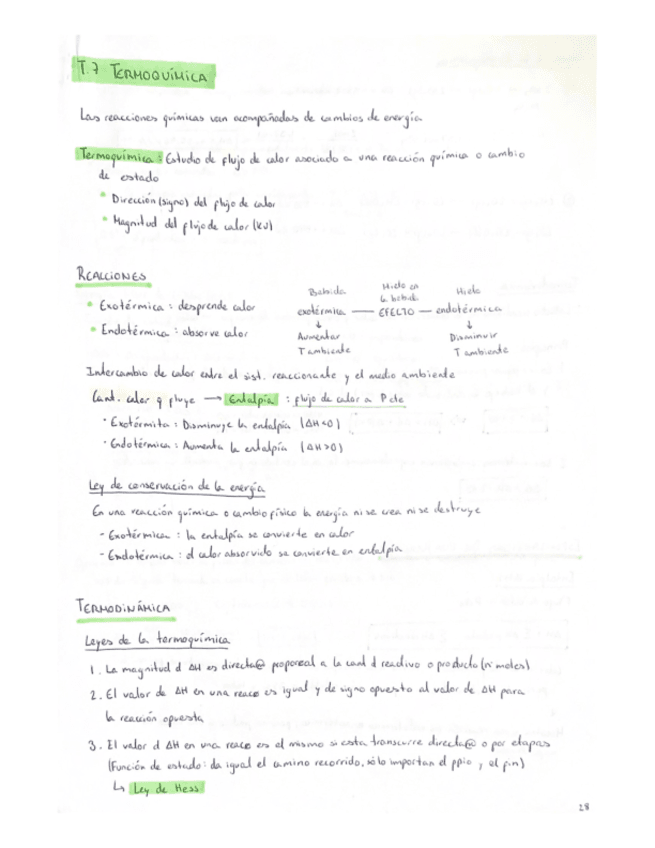 T.7 TERMOQUÍMICA
Las reacciones químicas van acompañadas de cambios de energía
Termoquímica: Estudio de flujo de calor asociado a una reacción química o cambio
de estado
• Dirección (signo) del flujo de calor
• Magnitud del flujo de calor (KJ)
REACCIONES
Bebida Hielo en la bebid. Hielo
• Exotérmica: desprende calor exotérmica — EFECTO — endotérmica
• Endotérmica: absorve calor ↓ Aumentar T ambiente ↓ Disminuir T ambiente
Intercambio de calor entre el sist. reaccionante y el medio ambiente
Cant. calor q fluye → Entalpía : flujo de calor a P cte
· Exotérmita: Disminuye la entalpía (ΔH<0)
· Endotérmica: Aumenta la entalpía (ΔH>0)
Ley de conservación de la energía
En una reacción química o cambio físico la energía ni se crea ni se destruye
- Exotérmica: la entalpía se convierte en calor
- Endotérmica: el calor absorvido se convierte en entalpía
TERMODINÁMICA
Leyes de la termoquímica
1. La magnitud d ΔH es directa@ proporcal a la cant d reactivo o producto (nº moles)
2. El valor de ΔH en una reacc es igual y de signo opuesto al valor de ΔH para
la reacción opuesta
3. El valor d ΔH en una reacc es el mismo si esta transcurre directa@ o por etapas
(Función de estado: da igual el camino recorrido, sólo importan el ppio y el fin)
↳ Ley de Hess
28